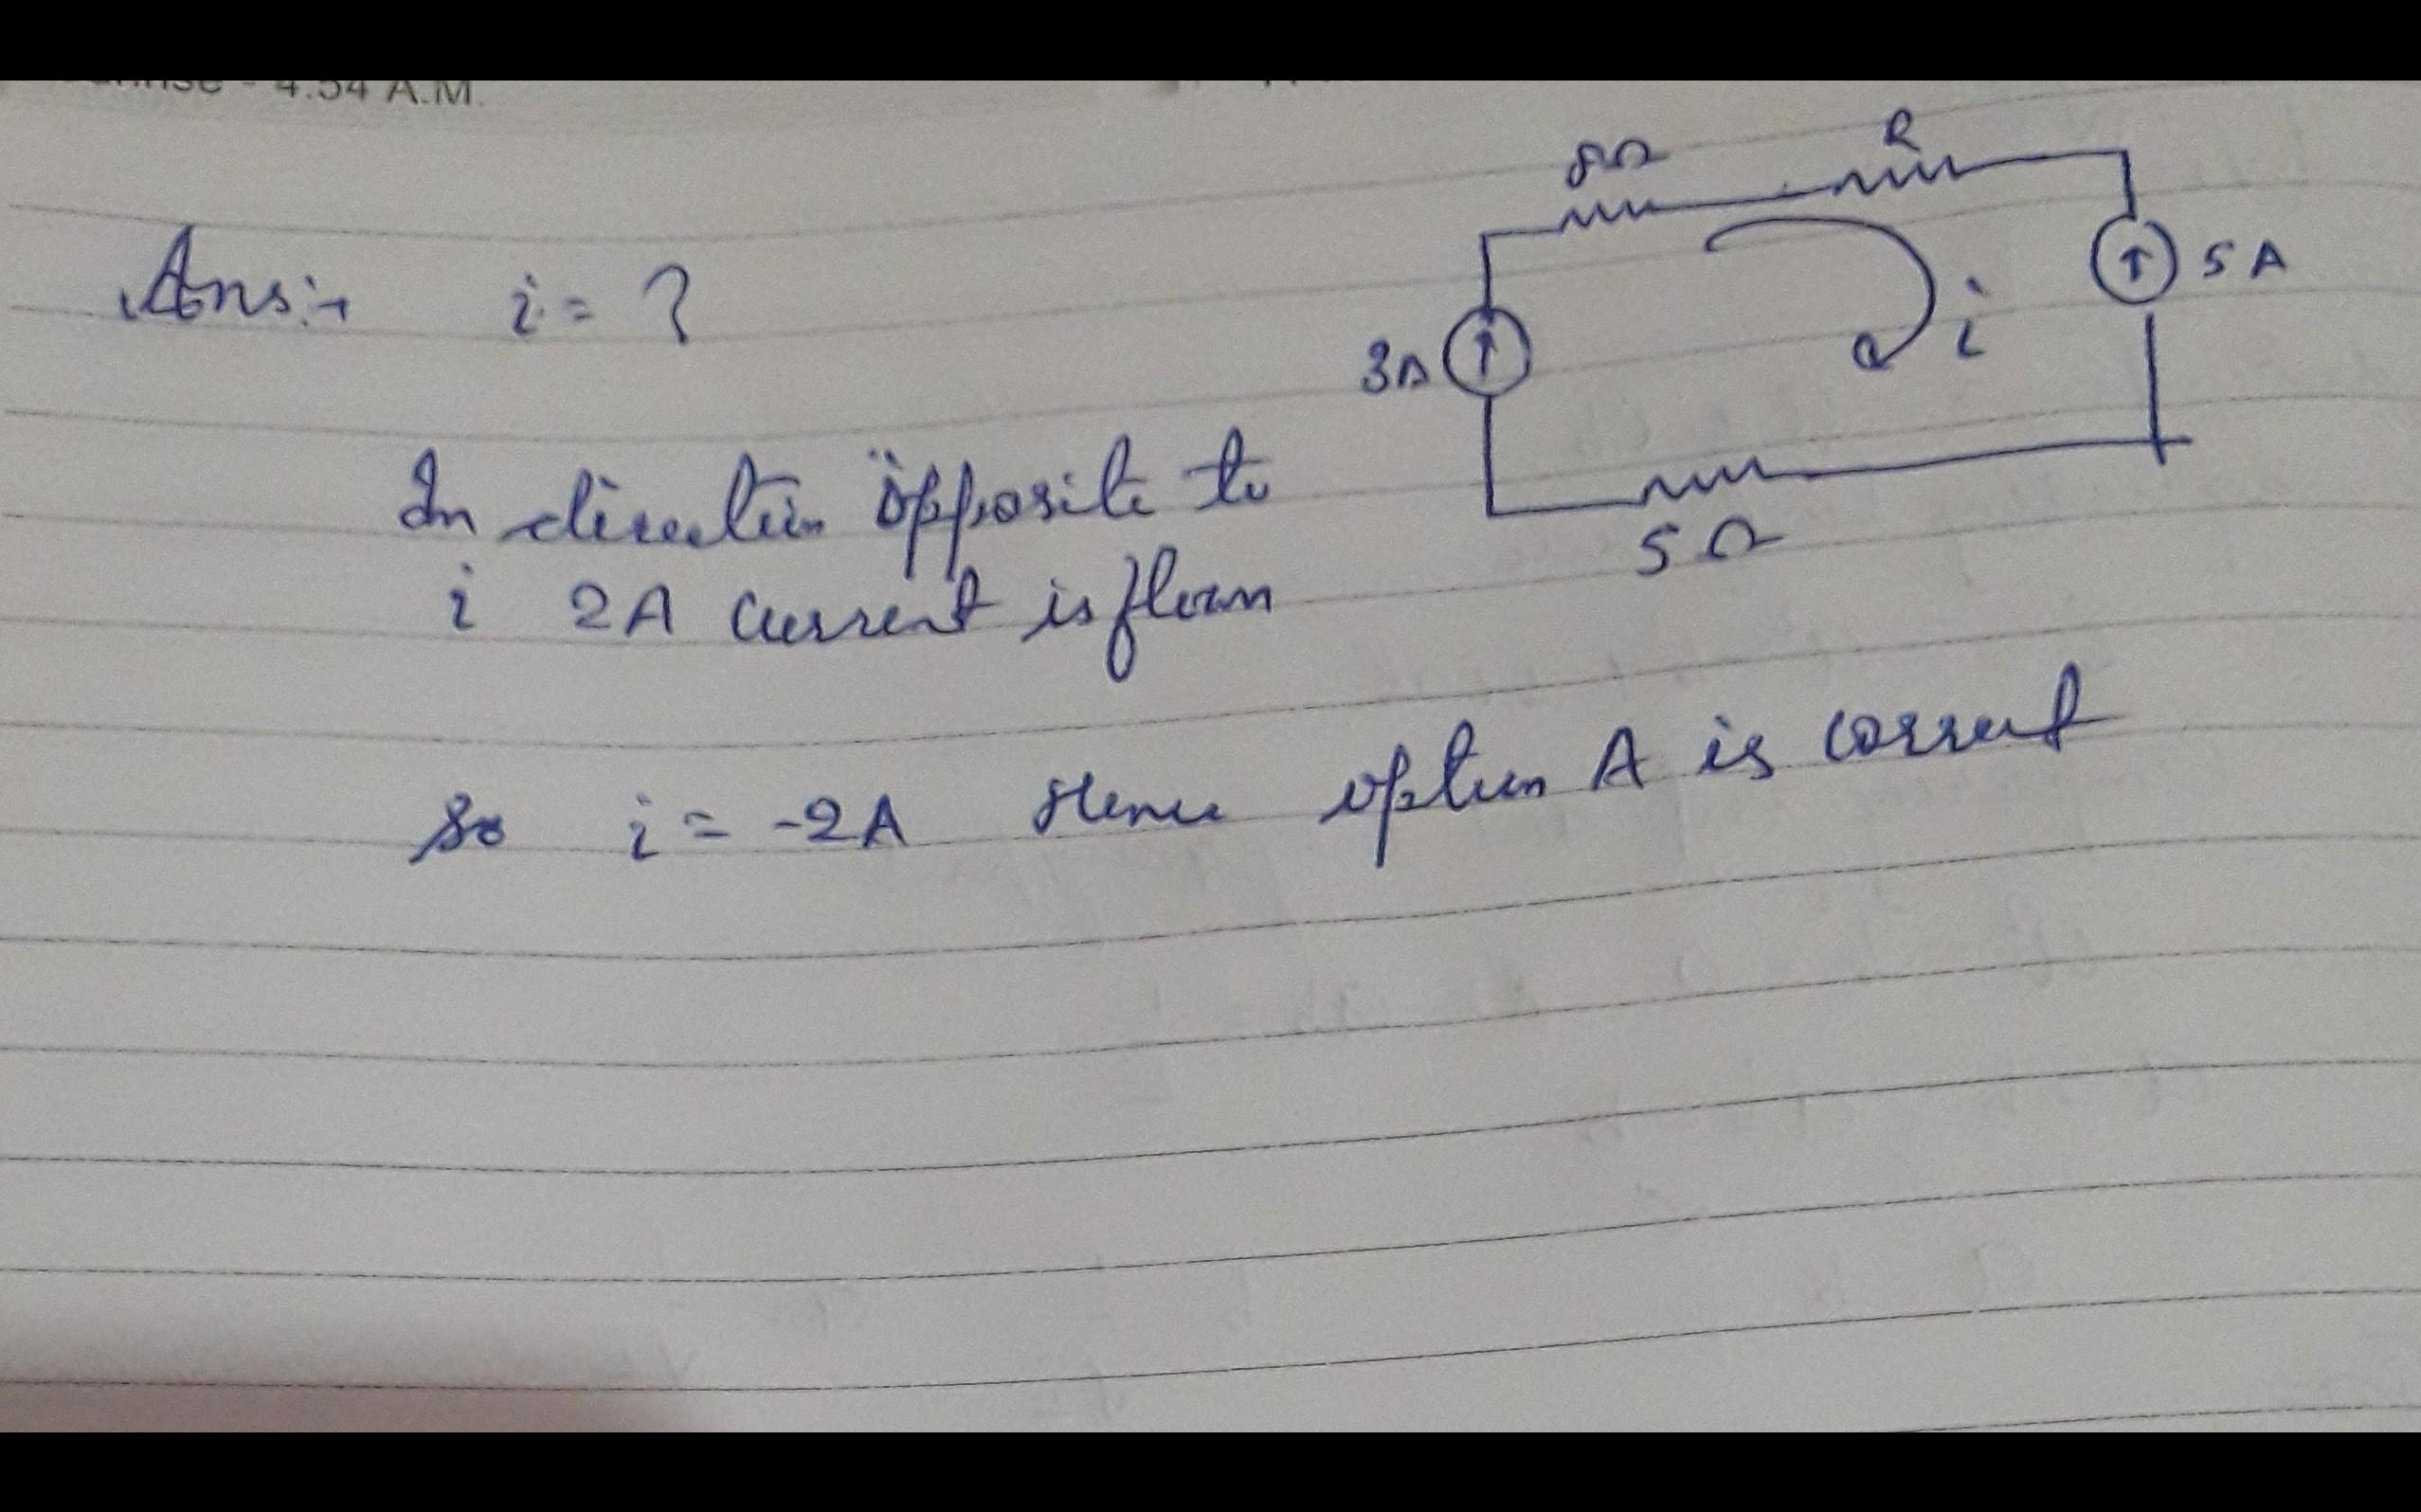 - 4.54 A.M.
8Ω
R
Ans:→ i = ?
5 A
i
3A
In direction opposite to
5 Ω
i 2A current is flown
So i = -2A Hence option A is correct